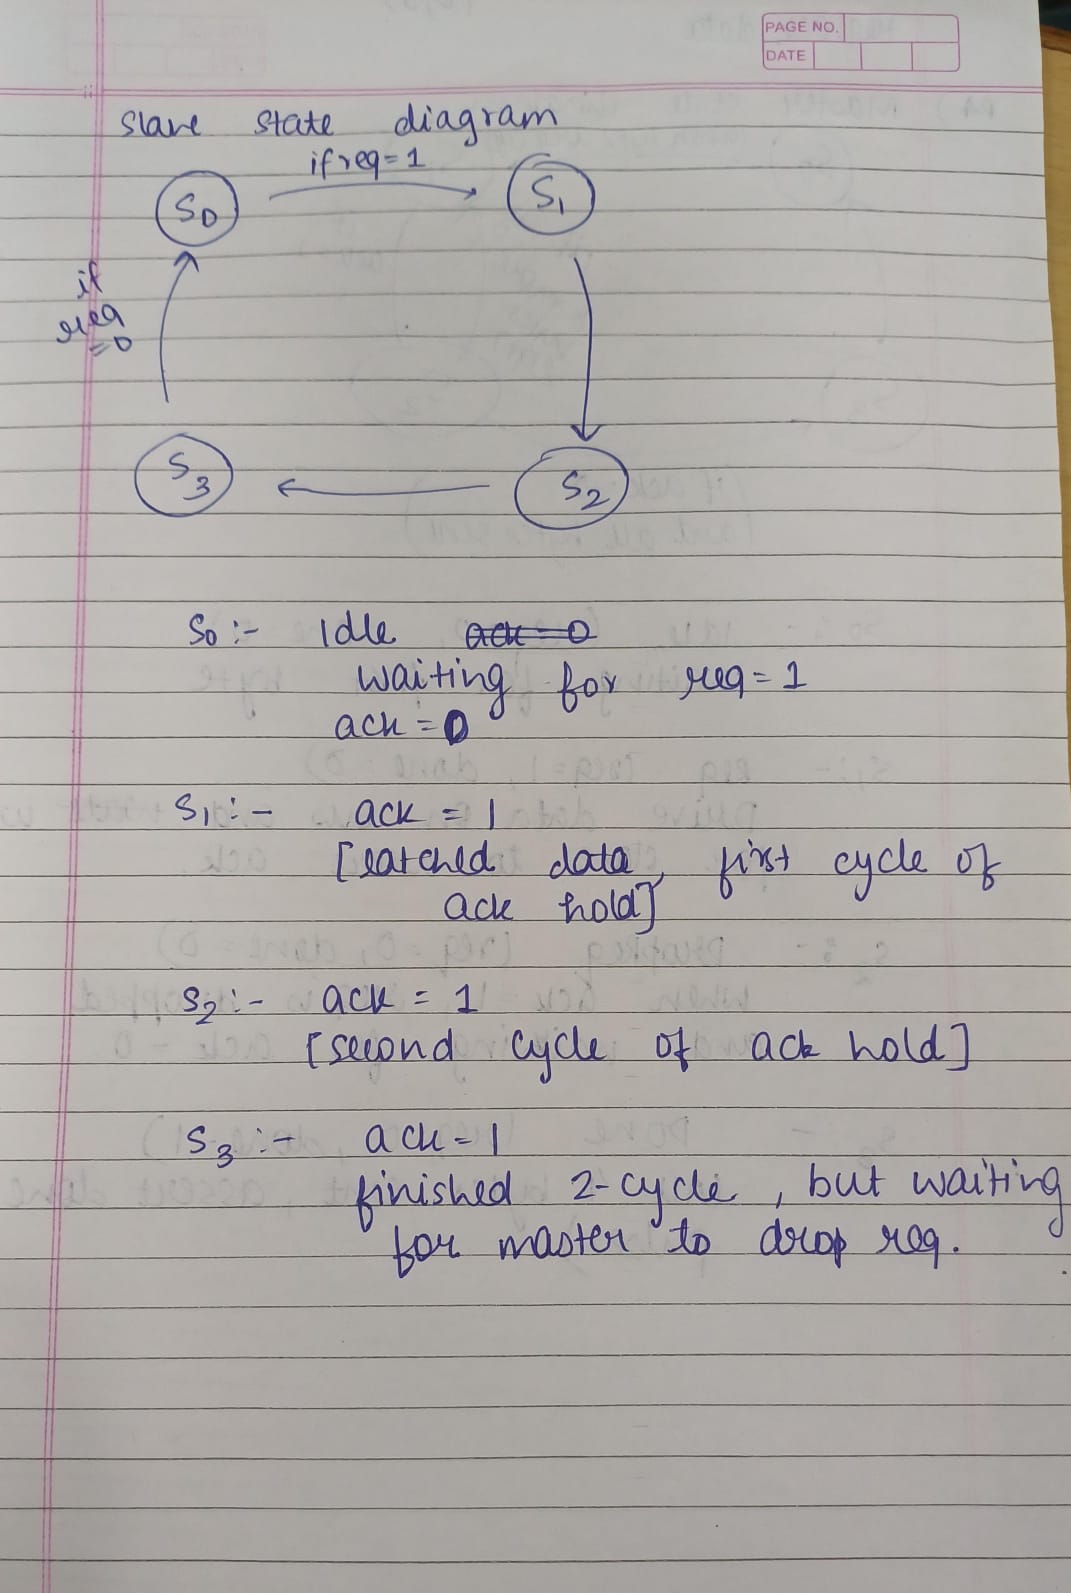 PAGE NO.
DATE
Slave state diagram
if req = 1
S0
S1
if
req
= 0
S3
S2
S0 :- Idle
waiting for req = 1
ack = 0
S1 :- ack = 1
[latched data, first cycle of
ack hold]
S2 :- ack = 1
[second cycle of ack hold]
S3 :- ack = 1
finished 2-cycle, but waiting
for master to drop req.